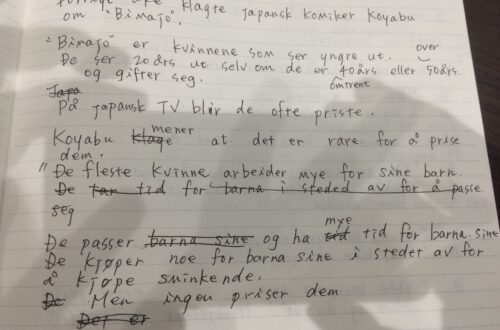 klagte japansk komiker Koyabu
om "Bimajo".
"Bimajo" er kvinnene som ser yngre ut.
De ser 20 års ut selv om de er 40 års eller over 50 års.
og gifter seg. omtrent
Japa
På japansk TV blir de ofte priste.
Koyabu klage mener at det er rare for å prise
dem.
"De fleste kvinne arbeider mye for sine barn.
De tar tid for barna i steded av for å passe
seg
De passer barna sine og ha mye tid for barna sine
De kjøper noe for barna sine i stedet av for
å kjøpe sminkende.
De Men ingen priser dem
Det er